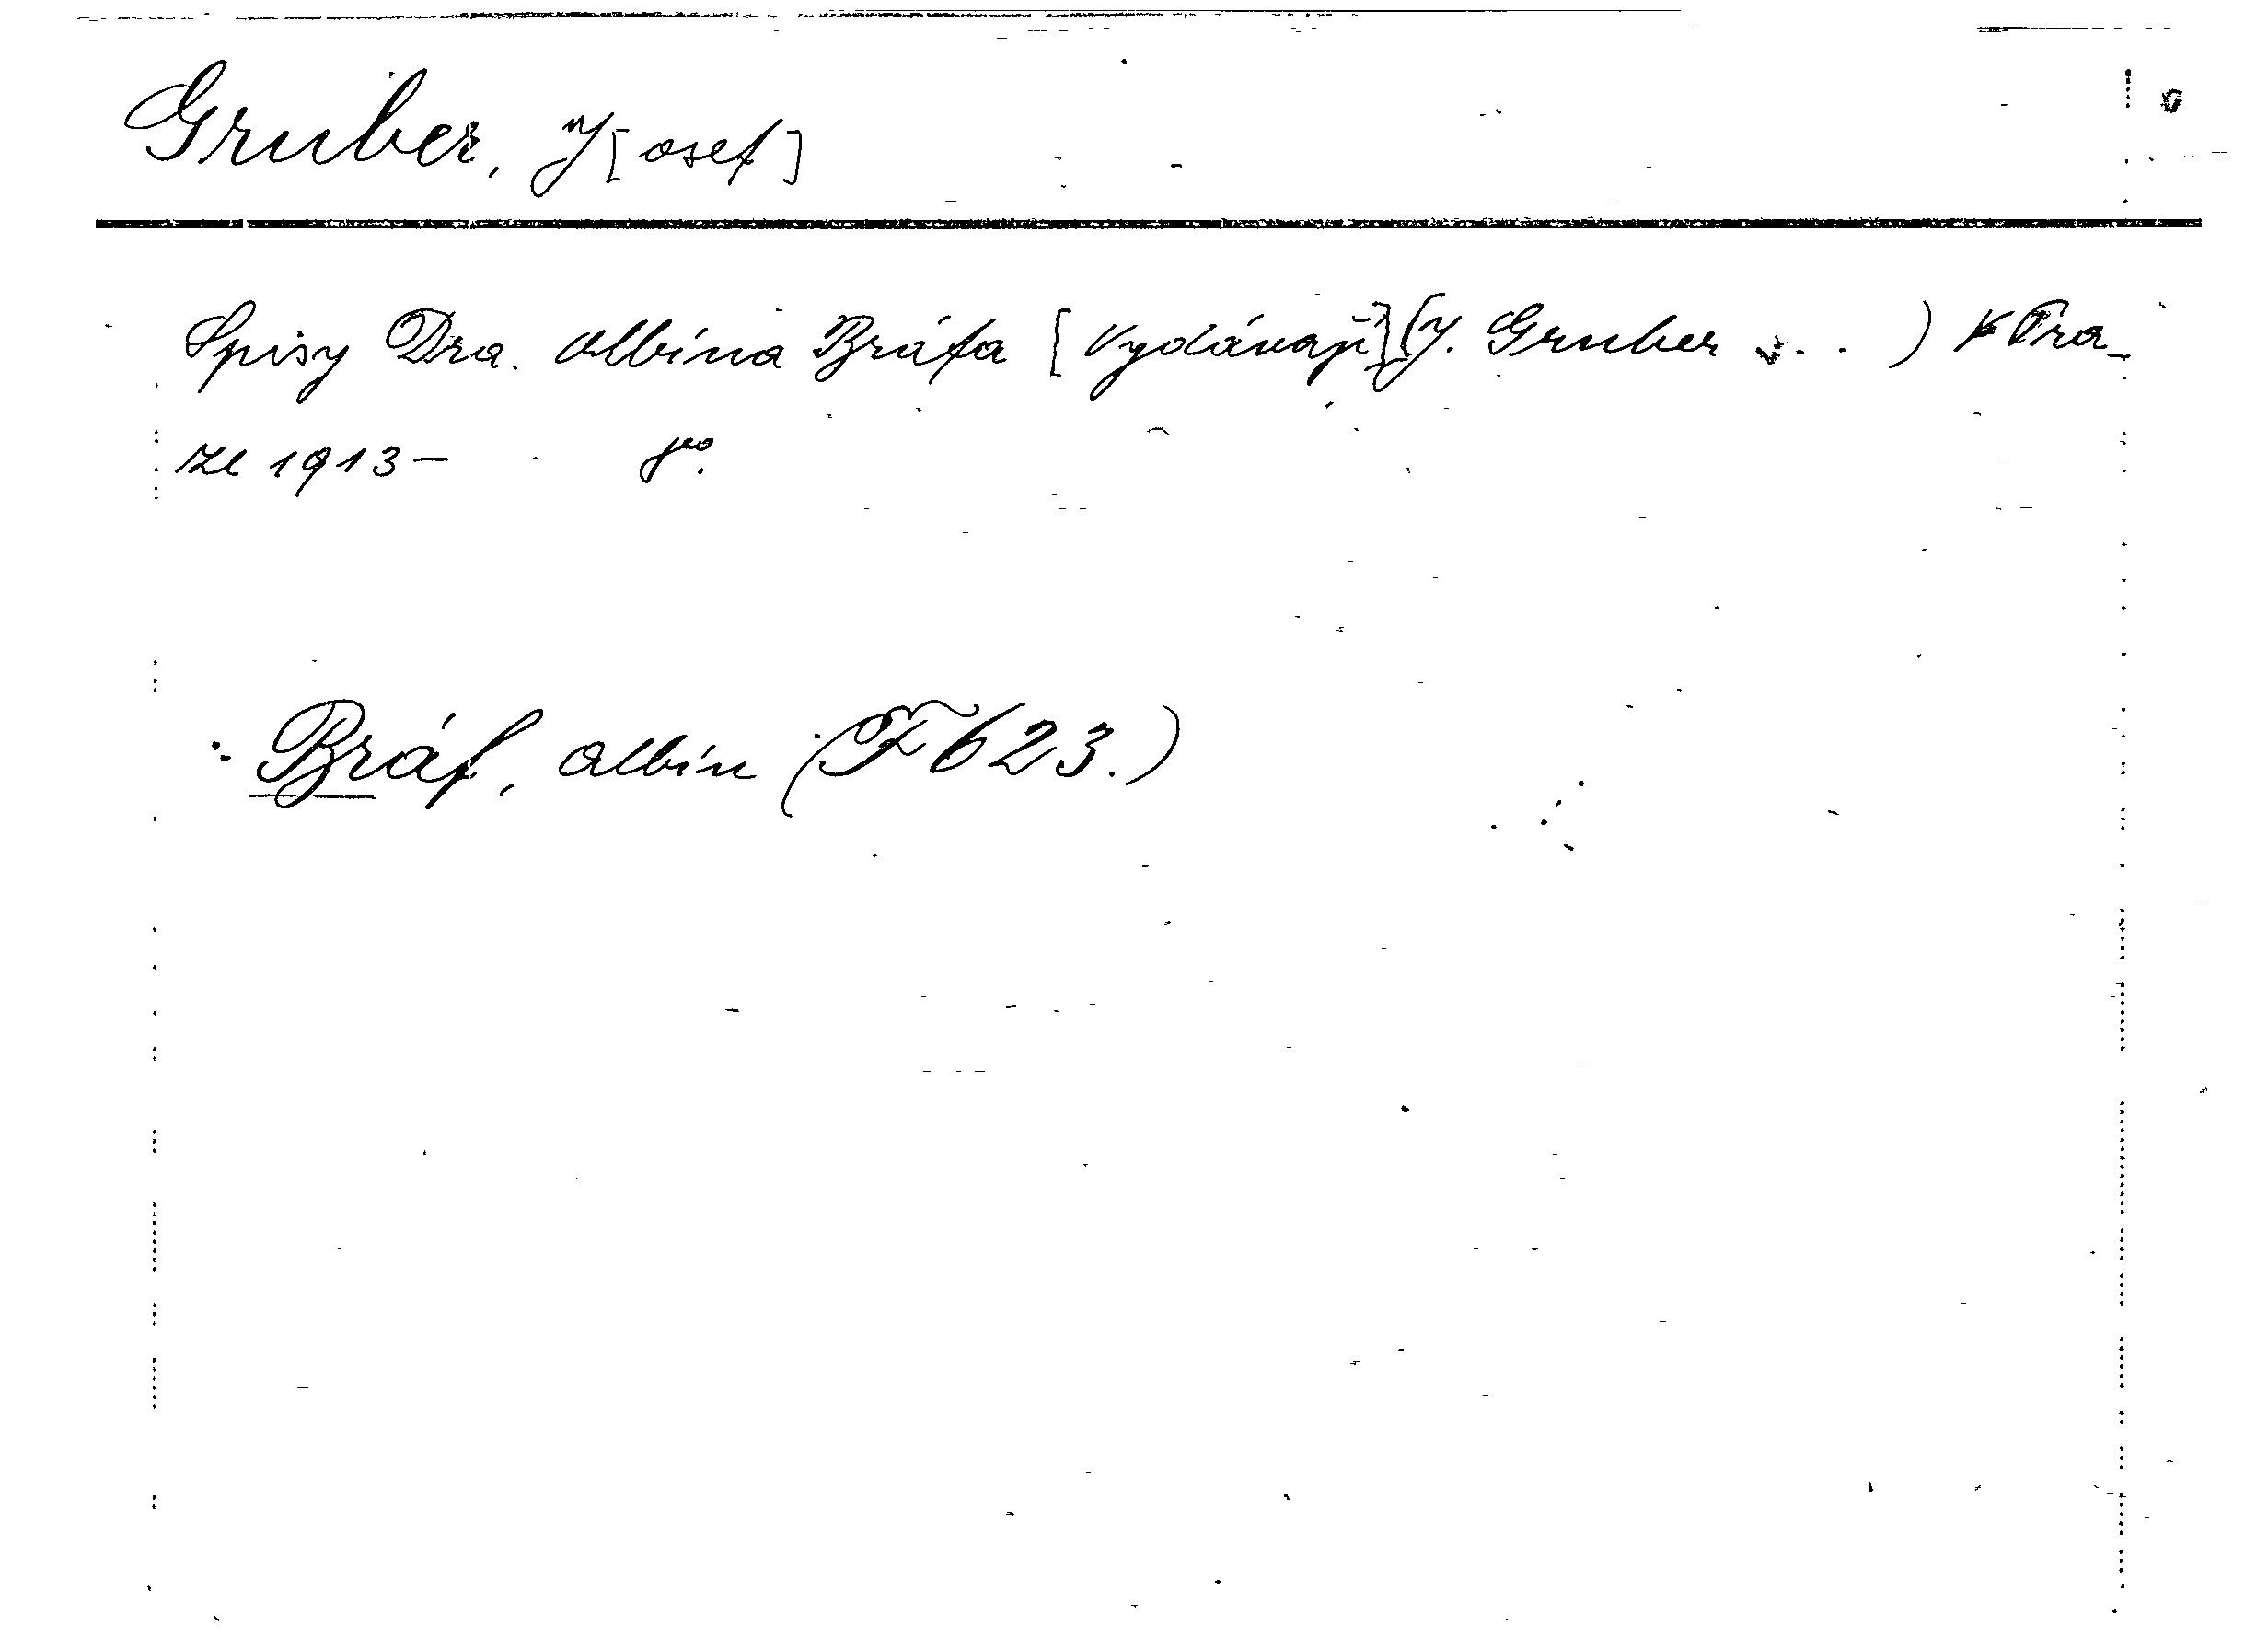 Gruber, J[osef]
Spisy Dra. Albína Bráfa [Vydávají] (J. Gruber ... ) V Pra-
ze 1913 – 8º.
: Bráf, Albín (F 623.)